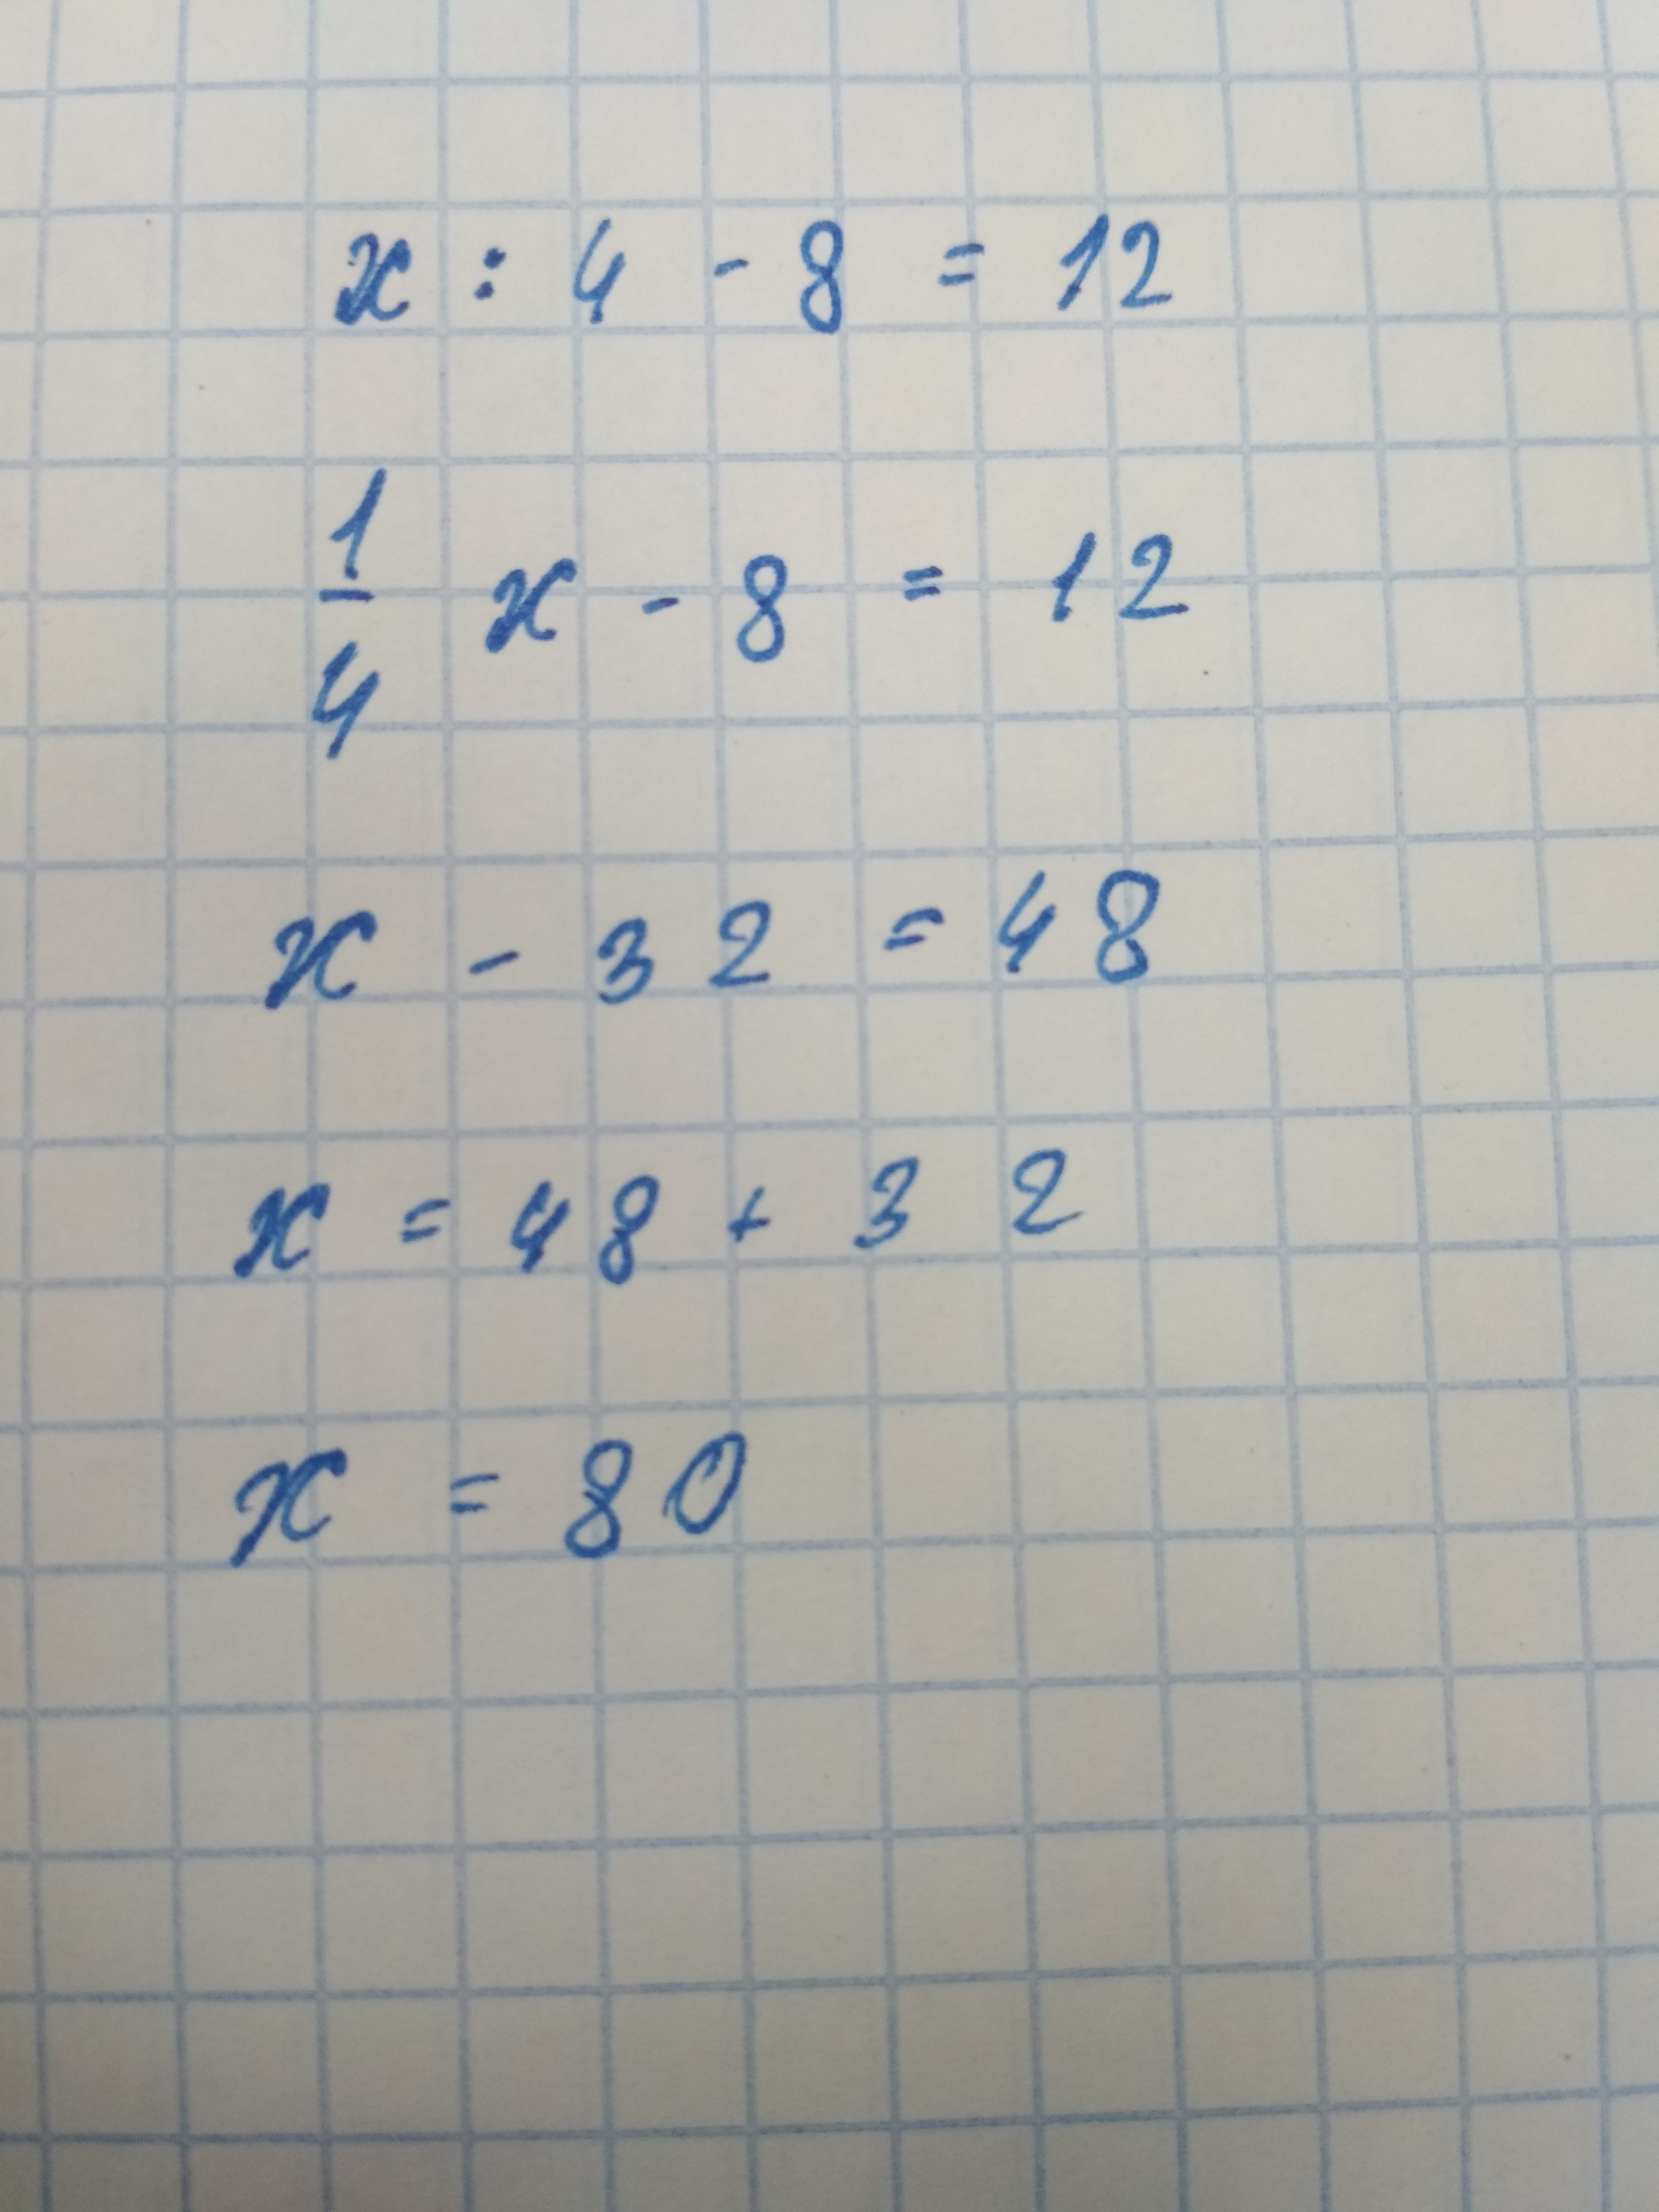 x : 4 - 8 = 12
1/4 x - 8 = 12
x - 32 = 48
x = 48 + 32
x = 80